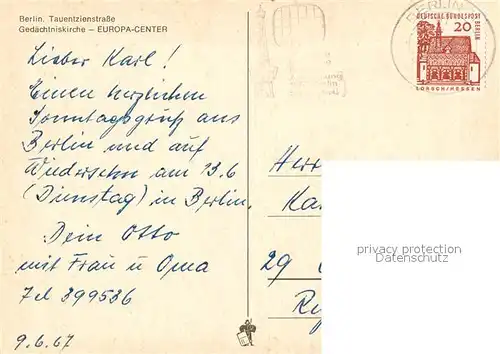 Berlin. Tauentzienstraße
Gedächtniskirche — EUROPA-CENTER
BERLIN
DEUTSCHE BUNDESPOST
BERLIN
20
LORSCH/HESSEN
Lieber Karl!
Einen herzlichen
Sonntagsgruß aus
Berlin und auf
Wiedersehn am 13.6
(Dienstag) in Berlin.
Dein Otto
mit Frau u Oma
Tel 399536
9.6.67
Herr
Ka
29
privacy protection
Datenschutz